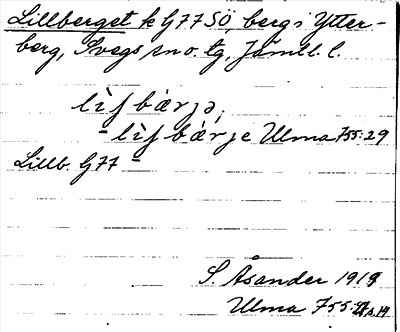 Lillberget k G77SÖ, berg i Ytter-
berg, Svegs sn o. tg, Jämtl. l.
lìʃbærjə,
-lìʃbærje Ulma 755:29
Lillb. G77 -
S. Åsander 1919
Ulma 755: